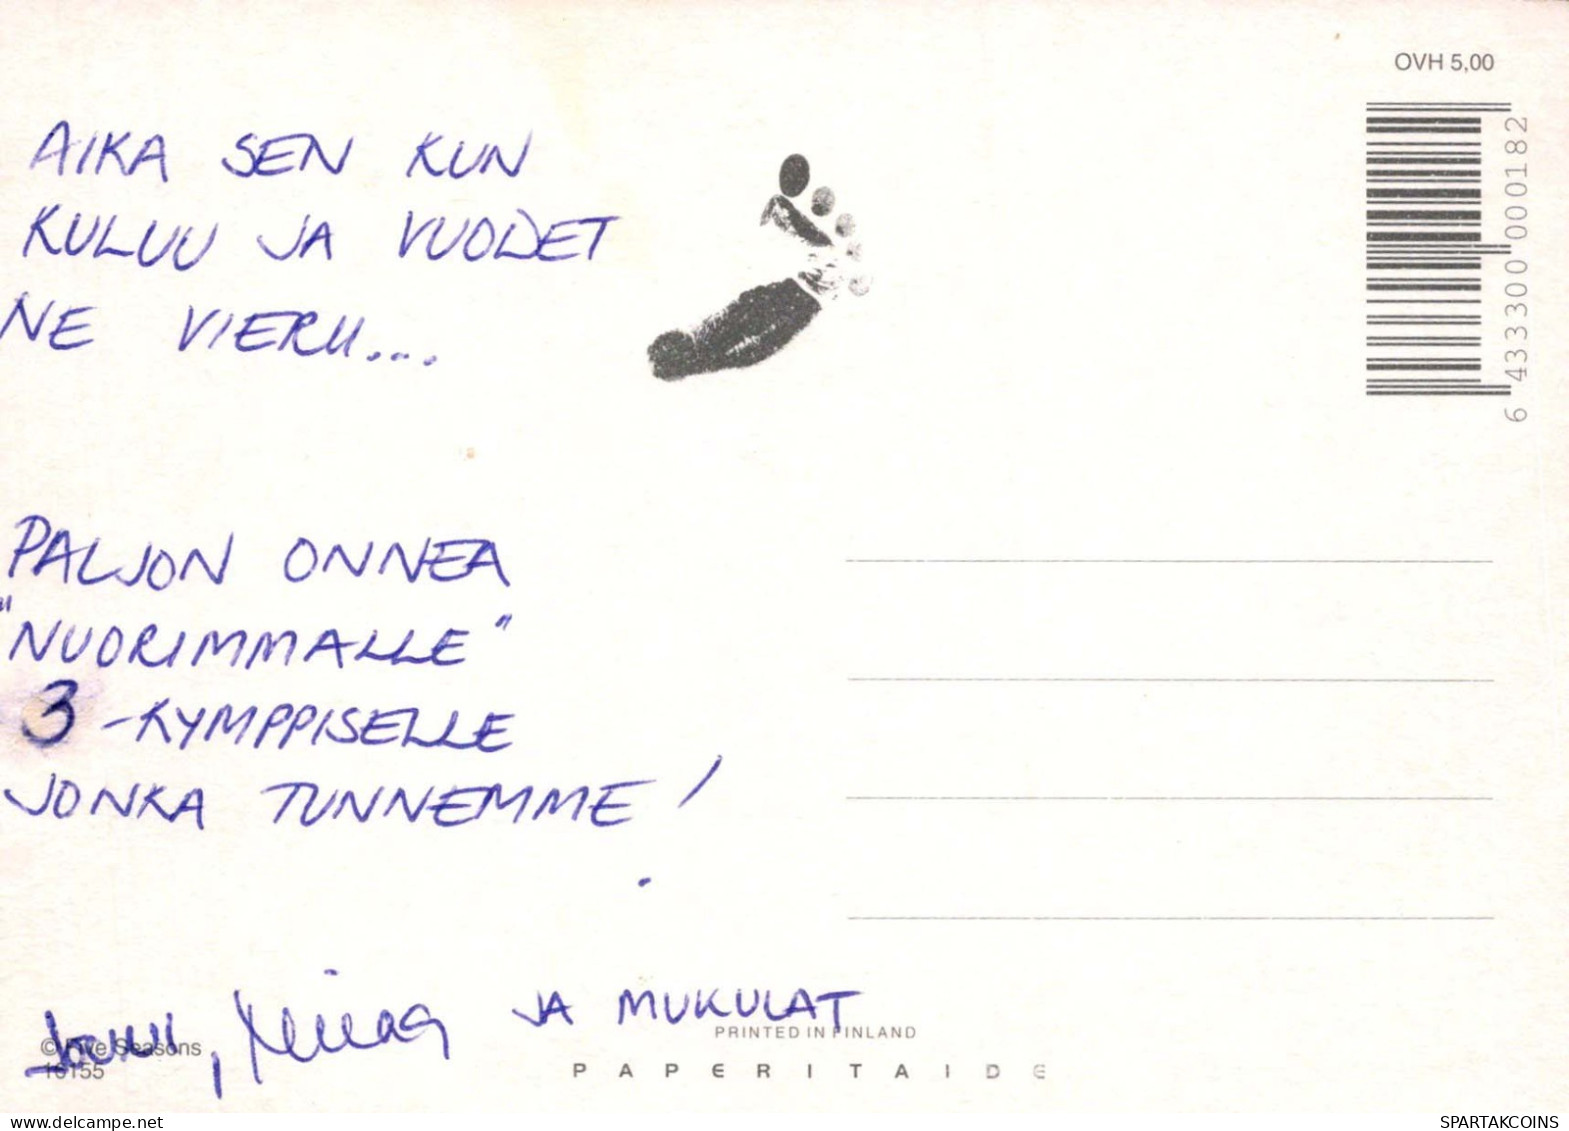 OVH 5,00
6 433300 000182
AIKA SEN KUN
KULUU JA VUODET
NE VIERII....
PALJON ONNEA
"NUORIMMALLE"
3-KYMPPISELLE
JONKA TUNNEMME!
JA MUKULAT
PRINTED IN FINLAND
© Five Seasons
16155
PAPERITAIDE
delcampe.net
SPARTAKCOINS